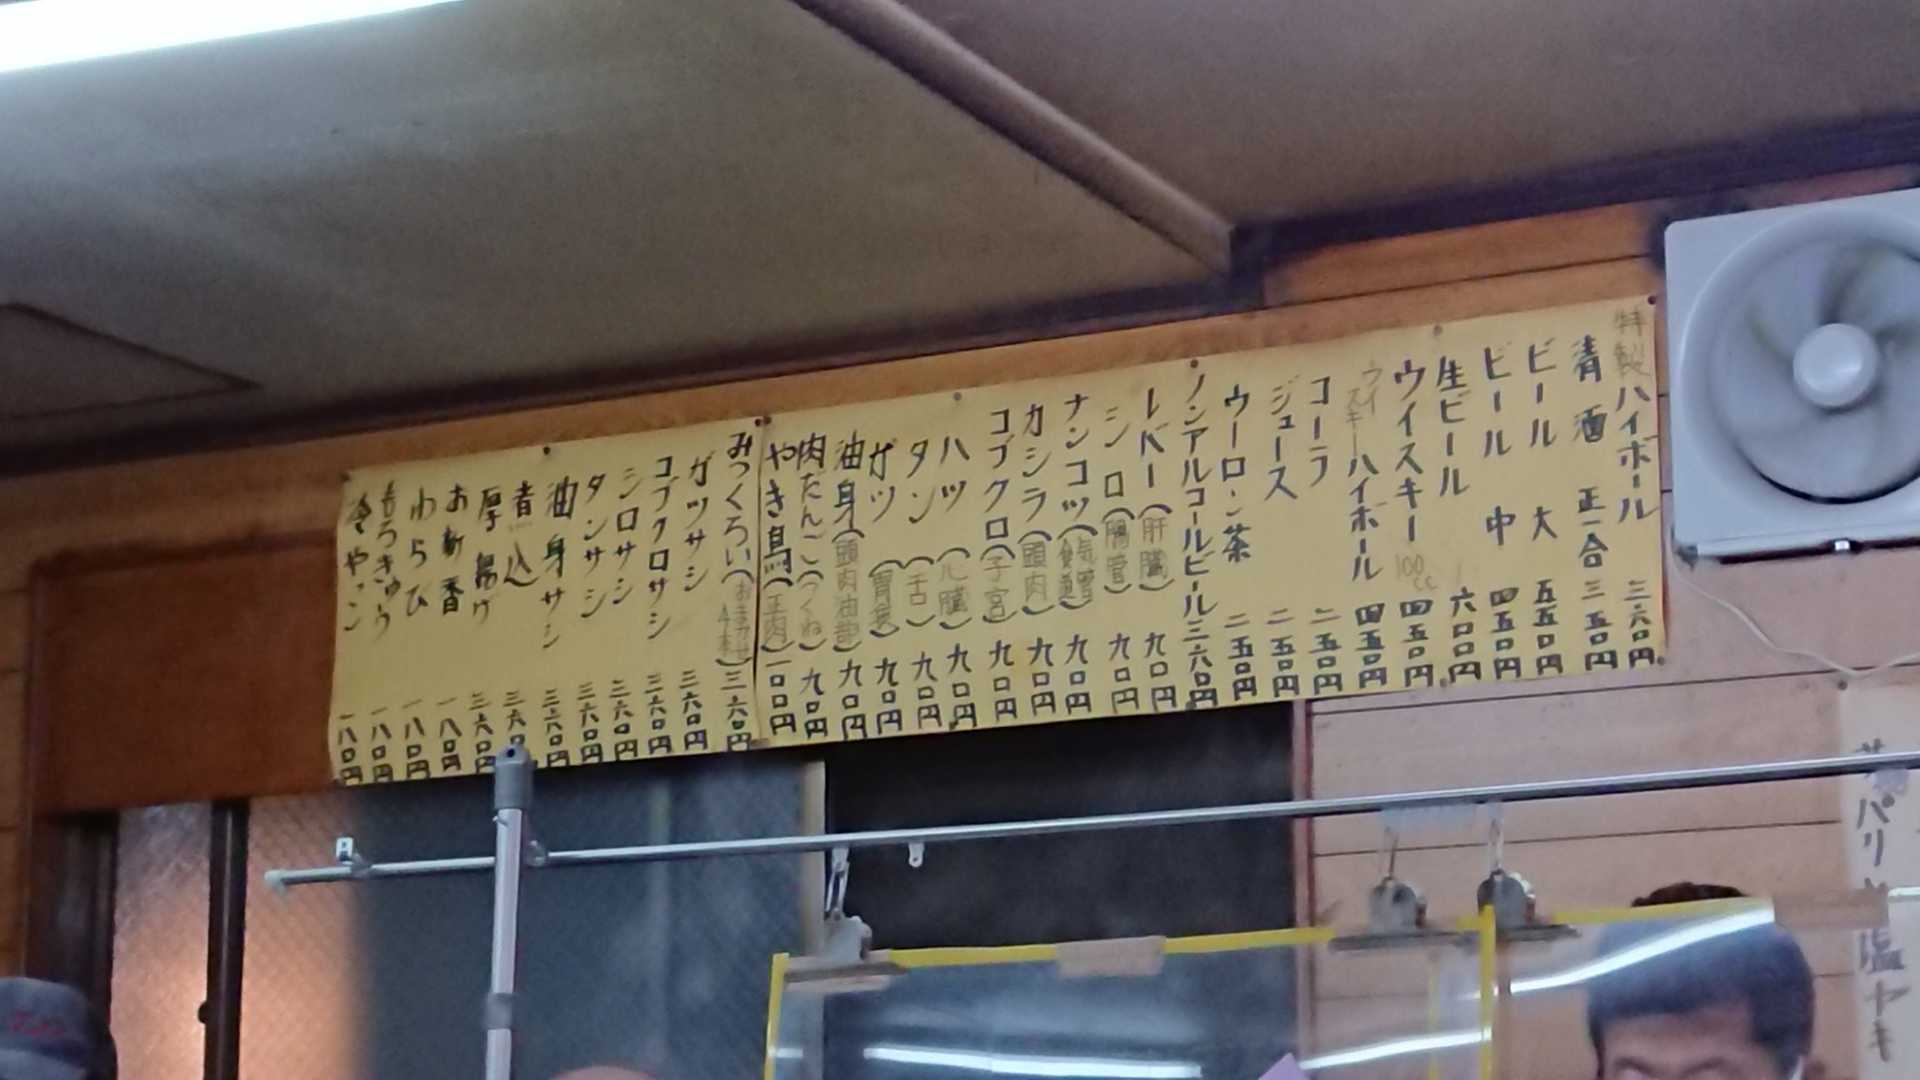 特製ハイボール 三六〇円
清酒 正一合 三五〇円
ビール 大 五五〇円
ビール 中 四五〇円
生ビール 六〇〇円
ウイスキー 100cc 四五〇円
ウイスキーハイボール 四五〇円
コーラ 二五〇円
ジュース 二五〇円
ウーロン茶 二五〇円
ノンアルコールビール 三六〇円
レバー(肝臓) 九〇円
シロ(腸管) 九〇円
ナンコツ(気管食道) 九〇円
カシラ(頭肉) 九〇円
コブクロ(子宮) 九〇円
ハツ(心臓) 九〇円
タン(舌) 九〇円
ガツ(胃袋) 九〇円
油身(頭肉油部) 九〇円
肉だんご(つくね) 九〇円
やき鳥(正肉) 一〇〇円
みつくろい(おまかせ4本) 三六〇円
ガツサシ 三六〇円
コブクロサシ 三六〇円
シロサシ 三六〇円
タンサシ 三六〇円
油身サシ 三六〇円
煮込 三六〇円
厚揚げ 三六〇円
お新香 一八〇円
わらび 一八〇円
もろきゅう 一八〇円
冷やっこ 一八〇円
塩ヤキ